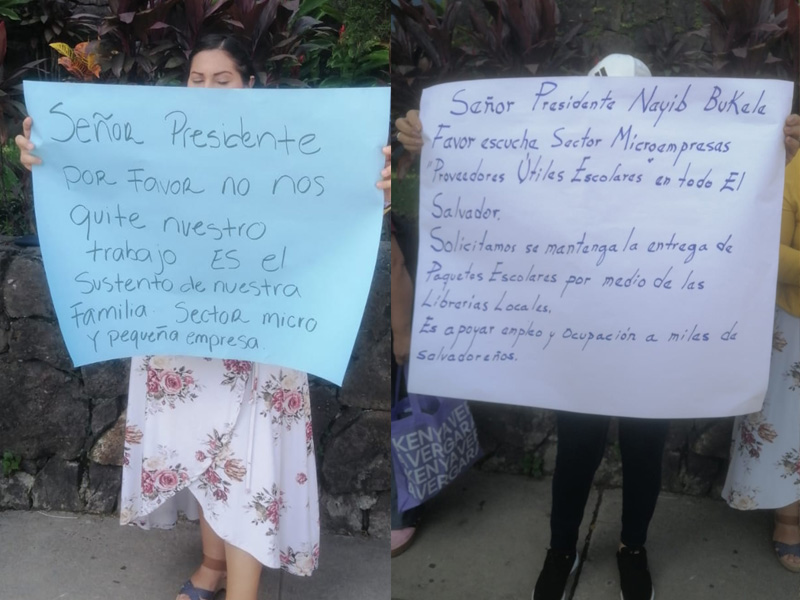 Señor Presidente
por Favor no nos
quite nuestro
trabajo ES el
Sustento de nuestra
Familia Sector micro
y pequeña empresa
Señor Presidente Nayib Bukele
Favor escucha Sector Microempresas
"Proveedores Útiles Escolares" en todo El
Salvador.
Solicitamos se mantenga la entrega de
Paquetes Escolares por medio de las
Librerías Locales.
Es apoyar empleo y Ocupación a miles de
salvadoreños.
KENYA VE
VERGARA
KENYA VE
VERGAR